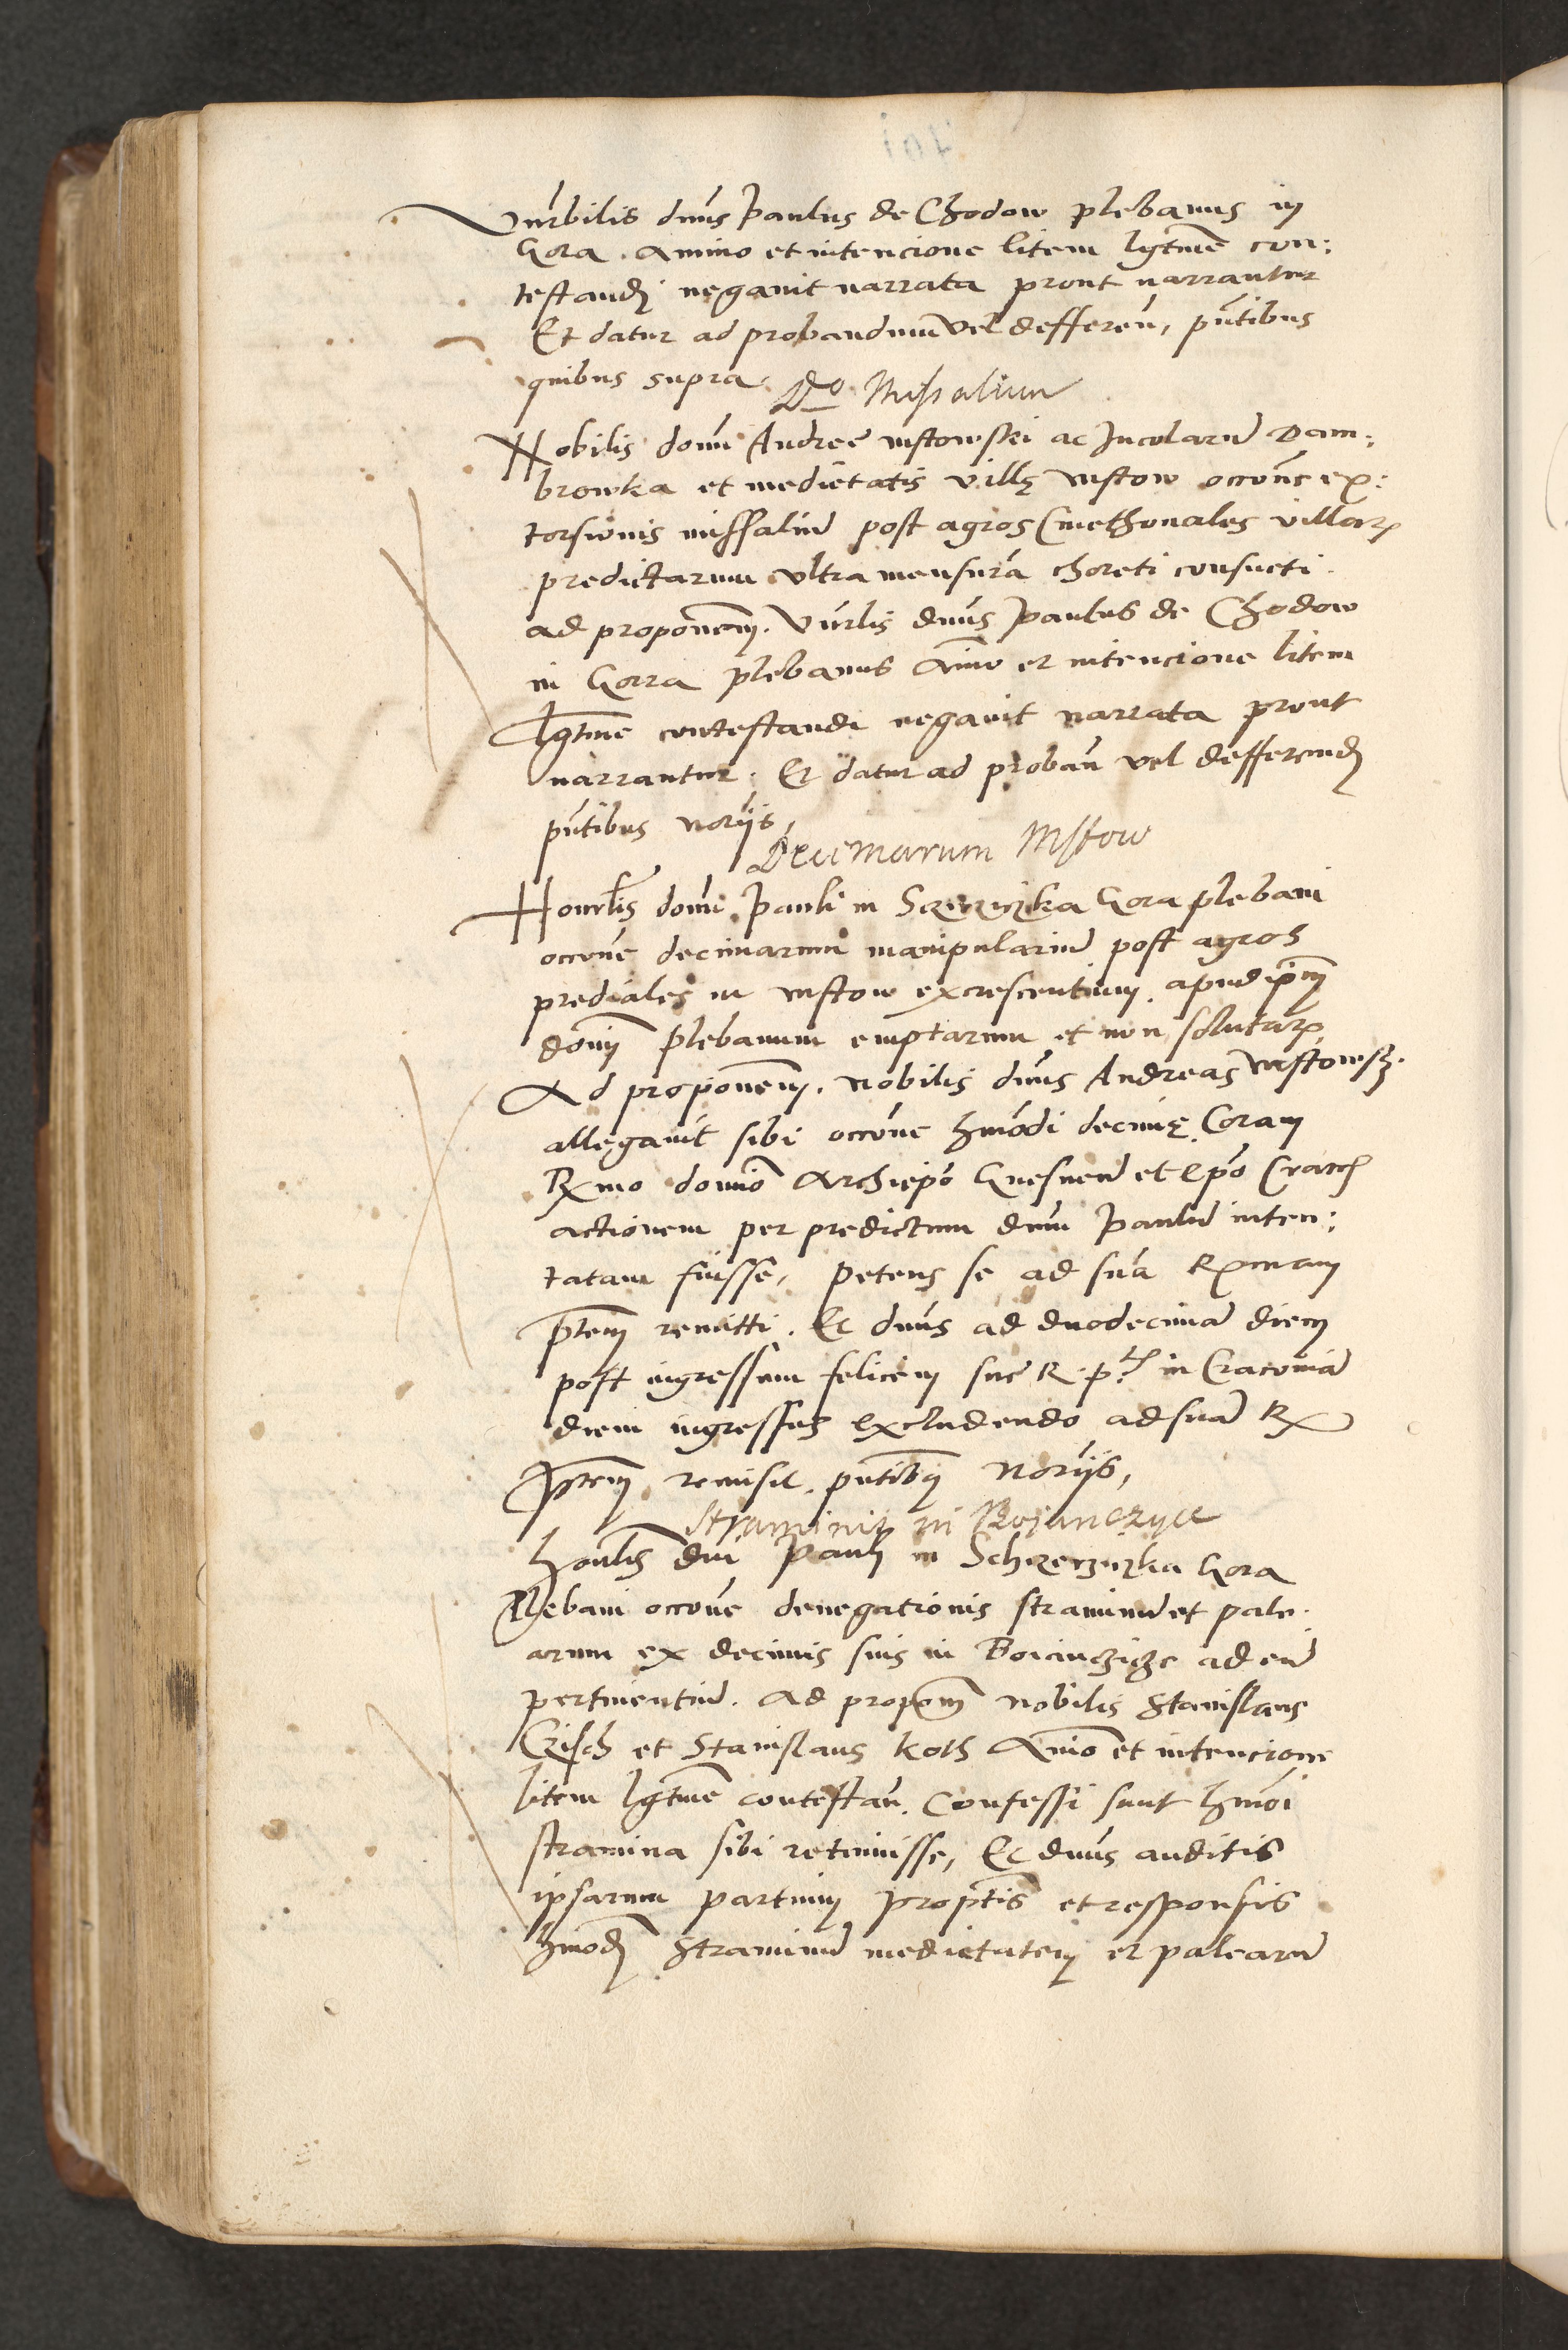 Vnrbilis dnus Paulus de Chodow plebanus in
Gora. Animo et intencione litem lgtme con:
testandj negauit narrata prout narrantur
Et datur ad probandum vel defferen, pntibus
quibus supra.
Do Missalium
Nobilis domi Andree Mstowskei ac Incolarum Dam:
browka et medietatis villę Mstow occone ex:
torsionis missalium post agros Cmethonales villarum
predictarum vltra mensura choreti consueti.
ad proponem. Vnrlis dnus Paulus de Chodow
in Gorra plebanus Animo et intencione litem
lgtme contestandi negauit narrata prout
narrantur. Et datur ad proban vel defferendj
pntibus norijs,
Decimarum Mstow
Honrlis domi Pauli in Gora plebani
occone decimarum manipularium post agros
prediales in Mstow excrescentium apud ipm
dom plebanum emptarum et non solutarum
Ad proponem. Nobilis dnus Andreas Mstowsz.
allegauit sibi occone hmodi decimę Coram
Rxmo domio Archiepo Gnesnen et Epo Cracoꝰ
actionem per predictum dnm Paulum inten:
tatam fuisse, petens se ad sua Rxmam
ptem remitti. Et dnus ad duodecimam diem
post ingressum felicem sue R. p. in Cracouia
diem ingressus excludendo ad sua Rx
ptem remisit. pntibus Norijs,
Straminis in Bojanczyce
honrlis dni Pauli in Gora
Plebani occone denegationis straminum et pale.
arum ex decimis suis in ad eum
pertinentium. Ad propom nobilis Stanislaus
Czisch et Stanislaus Koth Animo et intencione
litem lgtme contestan. Confessi sunt hmoi
stramina sibi retinuisse, Et dnus auditis
ipsarum partium proptis et responsis
hmodj straminum medietatem et palearum